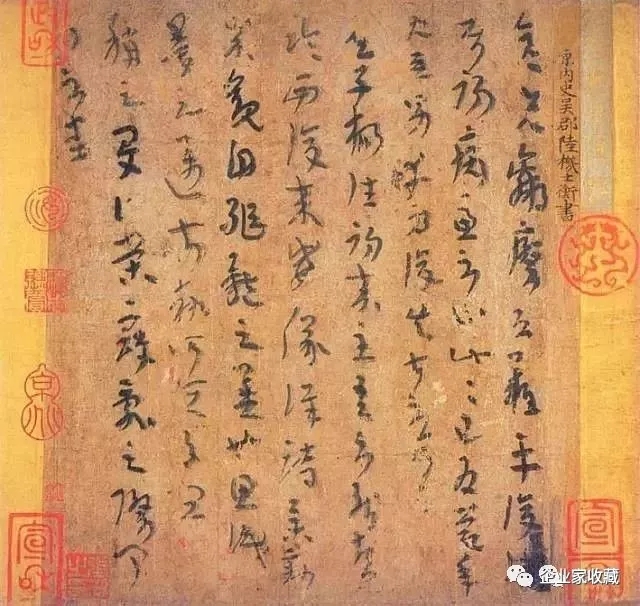 晉內史吳郡陸機士衡書
彥先羸瘵恐難平復
初病慮不止此此已為慶承
使唯男幸為復失前憂耳
子楊往初來主吾不能盡
臨西復來威儀詳跱舉動
成觀自軀體之美也思識
量之邁前執所恒有
稱之夏伯榮寇亂之際聞
問不悉
企业家收藏